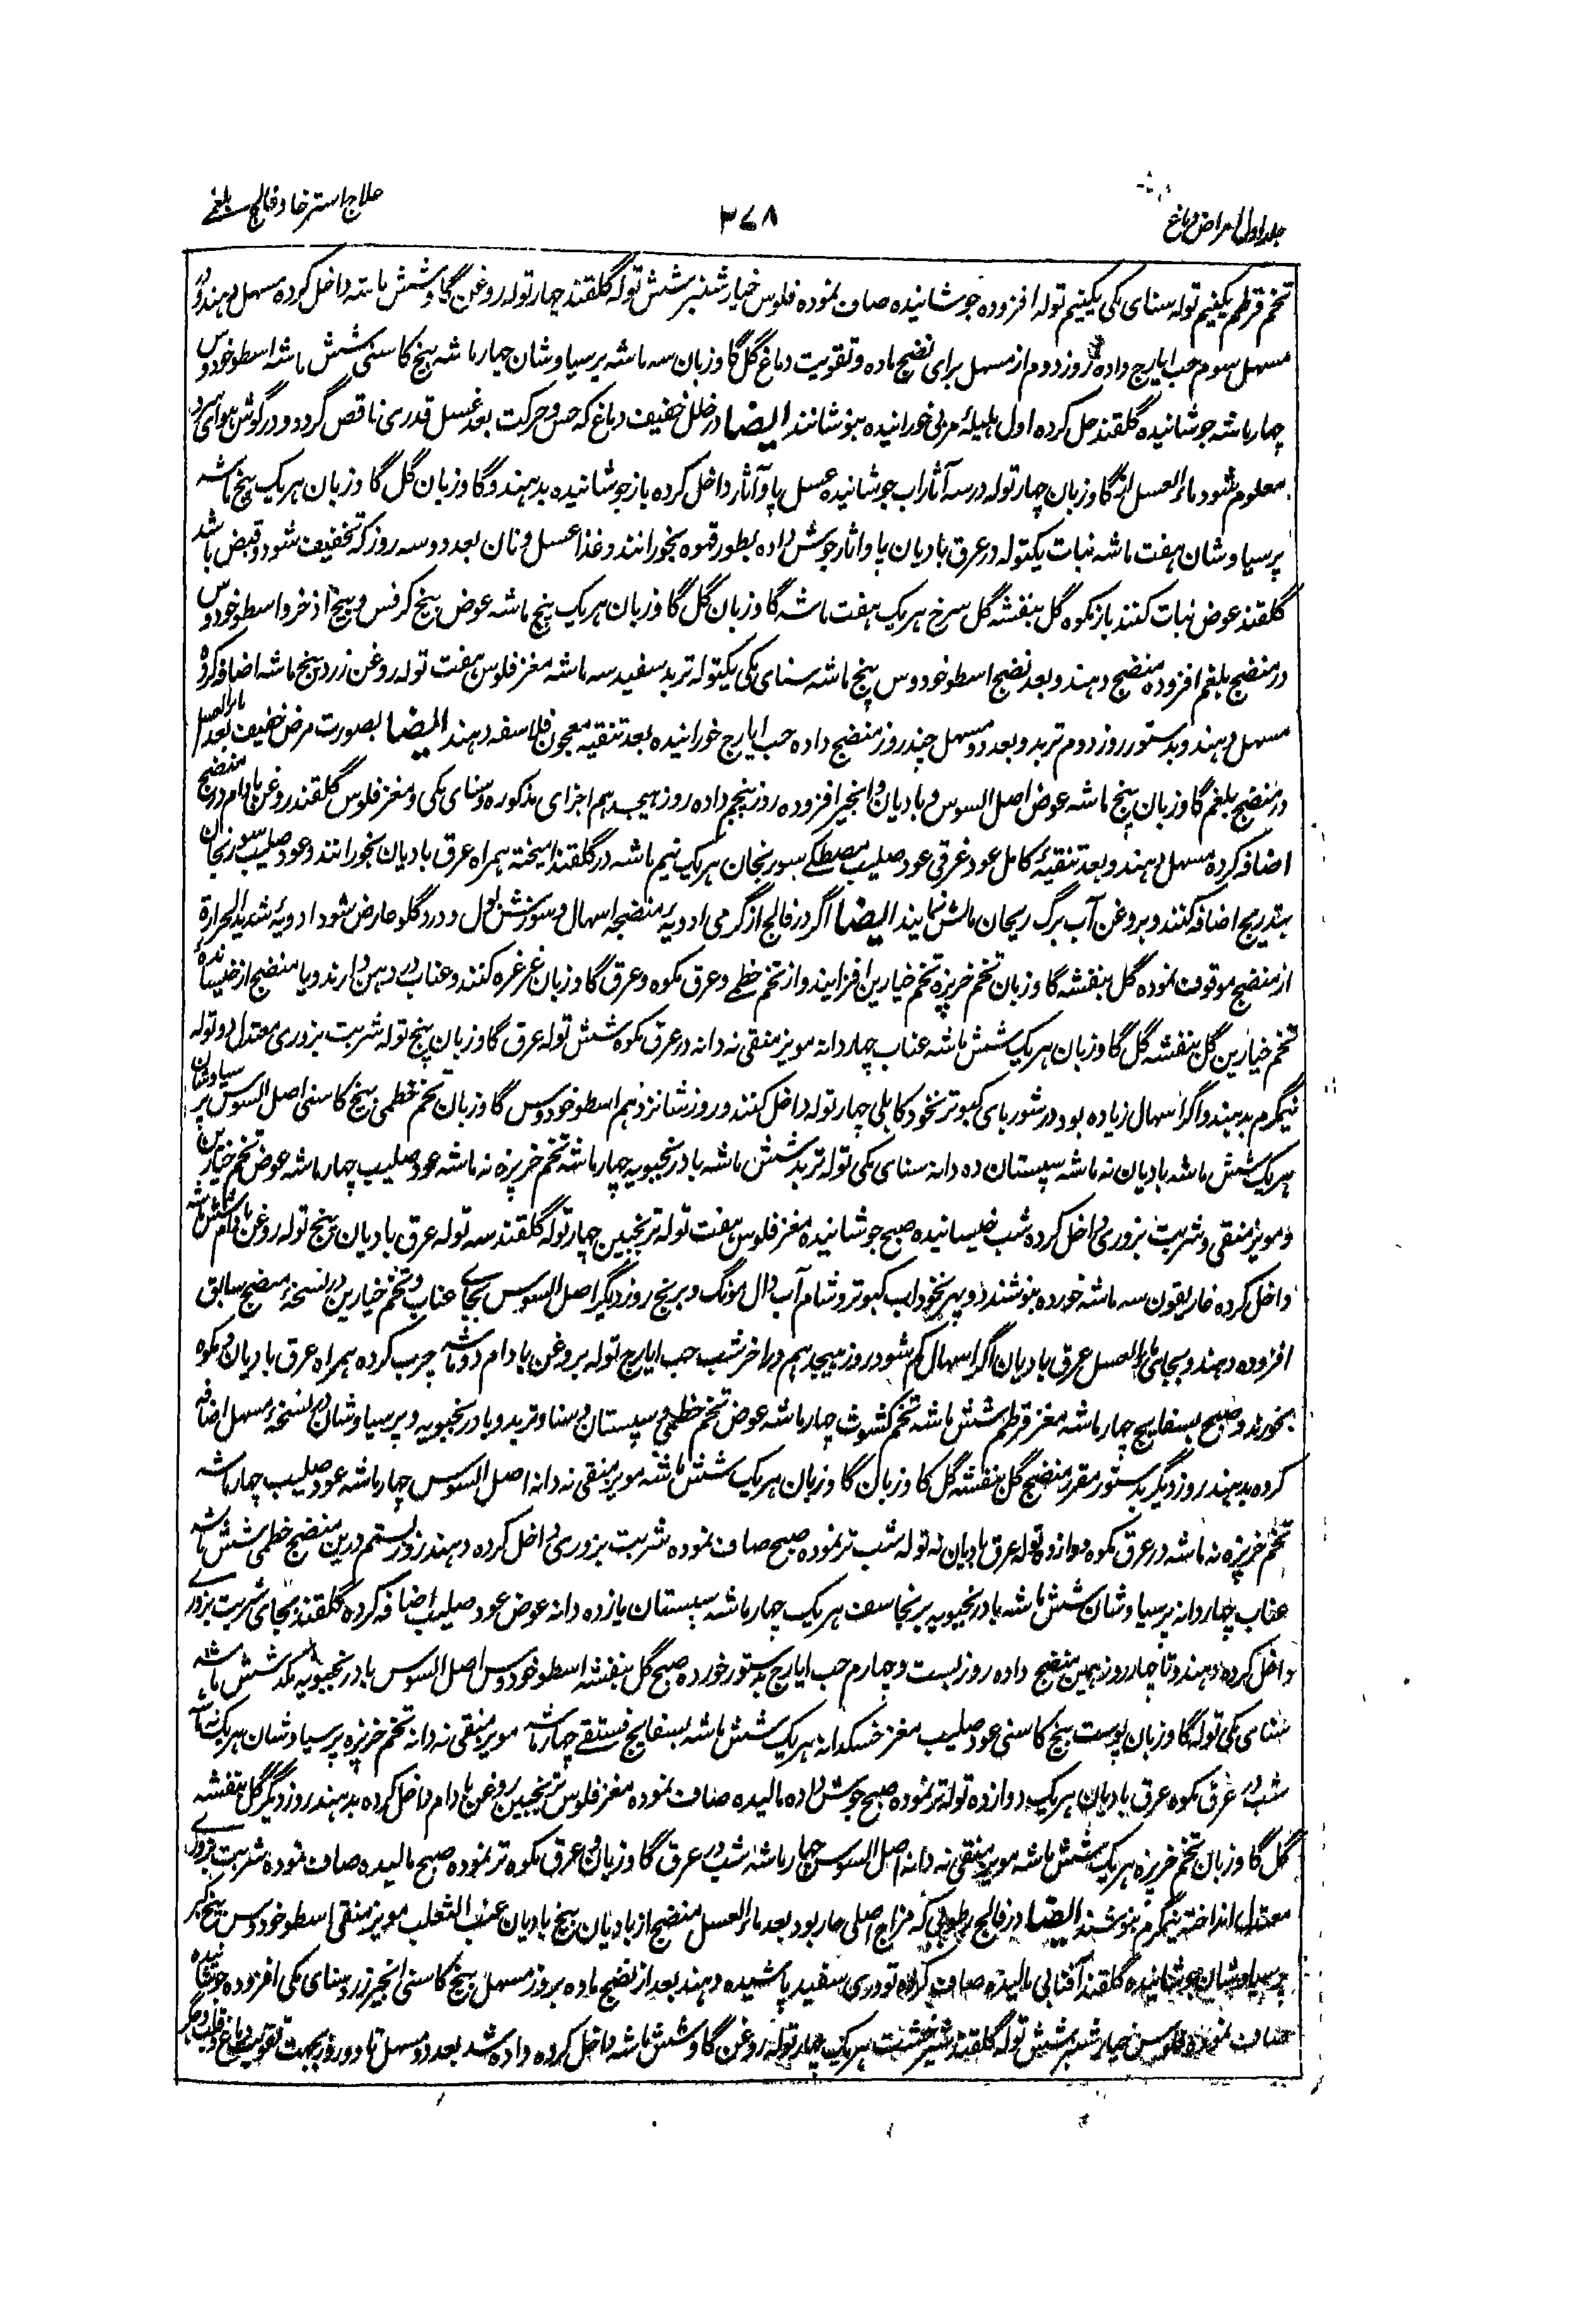 جلد اول امراض دماغ
۳۷۸
علاج استرخا و فالج بلغمی
تخم قرطم یکنیم توله سنای مکی یکنیم توله افزوده جوشانیده صاف نموده فلوس خیارشنبر شش توله گلقند چهار توله روغن گاو شش ماشه داخل کرده مسهل دهند و در
مسهل سوم حب ایارج داده روز دوم از مسهل برای نضج ماده و تقویت دماغ گل گاوزبان سه ماشه پرسیاوشان چهار ماشه بیخ کاسنی شش ماشه اسطوخودوس
چهار ماشه جوشانیده گلقند حل کرده اول هلیلهٔ مربی خورانیده بنوشانند ایضا در خلل خفیف دماغ که حس و حرکت بعد غسل قدری ناقص گردد و در گوش هوای سرد
معلوم شود ماء العسل از گاوزبان چهار توله در سه آثار آب جوشانیده عسل پاو آثار داخل کرده باز جوشانیده بدهند و گاوزبان گل گاوزبان هر یک پنج ماشه
پرسیاوشان هفت ماشه نبات یکتوله در عرق بادیان پاو اثار جوش داده بطور قهوه بخورانند و غذا عسل و نان بعد دو سه روز که تخفیف شود و قبض باشد
گلقند عوض نبات کنند باز مکوه گل بنفشه گل سرخ هر یک هفت ماشه گاوزبان گل گاوزبان هر یک پنج ماشه عوض بیخ کرفس و بیخ اذخر و اسطوخودوس
در منضج بلغم افزوده منضج دهند و بعد نضج اسطوخودوس پنج ماشه سنای مکی یکتوله تربد سفید سه ماشه مغز فلوس هفت توله روغن زرد پنج ماشه اضافه کرده
مسهل دهند و بدستور روز دوم تربد و بعد دو مسهل چند روز منضج داده حب ایارج خورانیده بعد تنقیه معجون فلاسفه دهند ایضا بصورت مرض خفیف بعد ماء العسل
در منضج بلغم گاوزبان پنج ماشه عوض اصل السوس و بادیان و انجیر افزوده روز پنجم داده روز هیجدهم اجزای مذکوره و سنای مکی و مغز فلوس گلقند روغن بادام در منضج
اضافه کرده مسهل دهند و بعد تنقیهٔ کامل عود غرقی عود صلیب مصطکی سورنجان هر یک نیم ماشه در گلقند آمیخته همراه عرق بادیان بخورانند و عود صلیب سورنجان
بتدریج اضافه کنند و بروغن آب برگ ریحان مالش نمایند ایضا اگر در فالج از گرمی ادویه منضجه اسهال و سوزش بول و درد گلو عارض شود ادویهٔ شدید الحرارة
از منضج موقوف نموده گل بنفشه گاوزبان تخم خرپزه تخم خیارین افزایند و از تخم خطمی و عرق مکوه و عرق گاوزبان غرغره کنند و عناب در دهن دارند و یا منضج از خیسانده
تخم خیارین گل بنفشه گل گاوزبان هر یک شش ماشه عناب چهار دانه مویز منقی نه دانه در عرق مکوه شش توله عرق گاوزبان پنج توله شربت بزوری معتدل دو توله
نیمگرم بدهند و اگر اسهال زیاده بود در شوربای کبوتر نخود کابلی چهار توله داخل کنند و روز شانزدهم اسطوخودوس گاوزبان تخم خطمی بیخ کاسنی اصل السوس پرسیاوشان
هر یک شش ماشه بادیان نه ماشه سپستان ده دانه سنای مکی توله تربد شش ماشه بادرنجبویه چهار ماشه تخم خرپزه نه ماشه عود صلیب چهار ماشه عوض تخم خیارین
و مویز منقی و شربت بزوری داخل کرده شب خیسانیده صبح جوشانیده مغز فلوس هفت توله ترنجبین چهار توله گلقند سه توله عرق بادیان پنج توله روغن بادام شش ماشه
داخل کرده غاریقون سه ماشه خورده بنوشند دوپهر نخوداب کبوتر و شام آب دال مونگ و برنج روز دیگر اصل السوس بجای عناب و تخم خیارین در نسخهٔ منضج سابق
افزوده دهند و بجای ماء العسل عرق بادیان اگر اسهال کم شود روز هیجدهم در آخر شب حب ایارج توله بروغن بادام دو ماشه چرب کرده همراه عرق بادیان و مکوه
بخورند و صبح بسفایج چهار ماشه مغز قرطم شش ماشه تخم کشوث چهار ماشه عوض تخم خطمی و سپستان و سنا و تربد و بادرنجبویه و پرسیاوشان در نسخهٔ مسهل اضافه
کرده بدهند روز دیگر بدستور مقرر منضج گل بنفشه گل گاوزبان گاوزبان هر یک شش ماشه مویز منقی نه دانه اصل السوس چهار ماشه عود صلیب چهار ماشه
تخم خرپزه نه ماشه در عرق مکوه دوازده توله عرق بادیان نه توله شب تر نموده صبح صاف نموده شربت بزوری داخل کرده دهند روز بستم درین منضج خطمی شش ماشه
عناب چهار دانه پرسیاوشان شش ماشه بادرنجبویه برنجاسف هر یک چهار ماشه سپستان یازده دانه عوض عود صلیب اضافه کرده گلقند بجای شربت بزوری
داخل کرده دهند و تا چهار روز همین منضج داده روز بست و چهارم حب ایارج بدستور خورده صبح گل بنفشه اسطوخودوس اصل السوس بادرنجبویه هر یک شش ماشه
سنای مکی توله گاوزبان پوست بیخ کاسنی عود صلیب مغز خسکدانه هر یک شش ماشه بسفایج فستقی چهار ماشه مویز منقی نه دانه تخم خرپزه پرسیاوشان هر یک نه ماشه
شب در عرق مکوه عرق بادیان هر یک دوازده توله تر نموده صبح جوش داده مالیده صاف نموده مغز فلوس ترنجبین روغن بادام داخل کرده بدهند روز دیگر گل بنفشه
گل گاوزبان تخم خرپزه هر یک شش ماشه مویز منقی نه دانه اصل السوس چهار ماشه شب در عرق گاوزبان و عرق مکوه تر نموده صبح مالیده صاف نموده شربت بزوری
معتدل انداخته نیمگرم بنوشند ایضا در فالج رطوبی که مزاج اصلی حار بود بعد ماء العسل منضج از بادیان بیخ بادیان عنب الثعلب مویز منقی اسطوخودوس بیخ کبر
پرسیاوشان جوشانیده گلقند آفتابی مالیده صاف کرده تودری سفید پاشیده دهند بعد از نضج ماده بروز مسهل بیخ کاسنی انجیر زرد سنای مکی افزوده جوشانیده
صاف نموده فلوس خیارشنبر شش توله گلقند شیرخشت هر یک چهار توله روغن گاو شش ماشه داخل کرده داده شد بعد دو مسهل تا دو روز بجهت تقویت دماغ و قلب و جگر